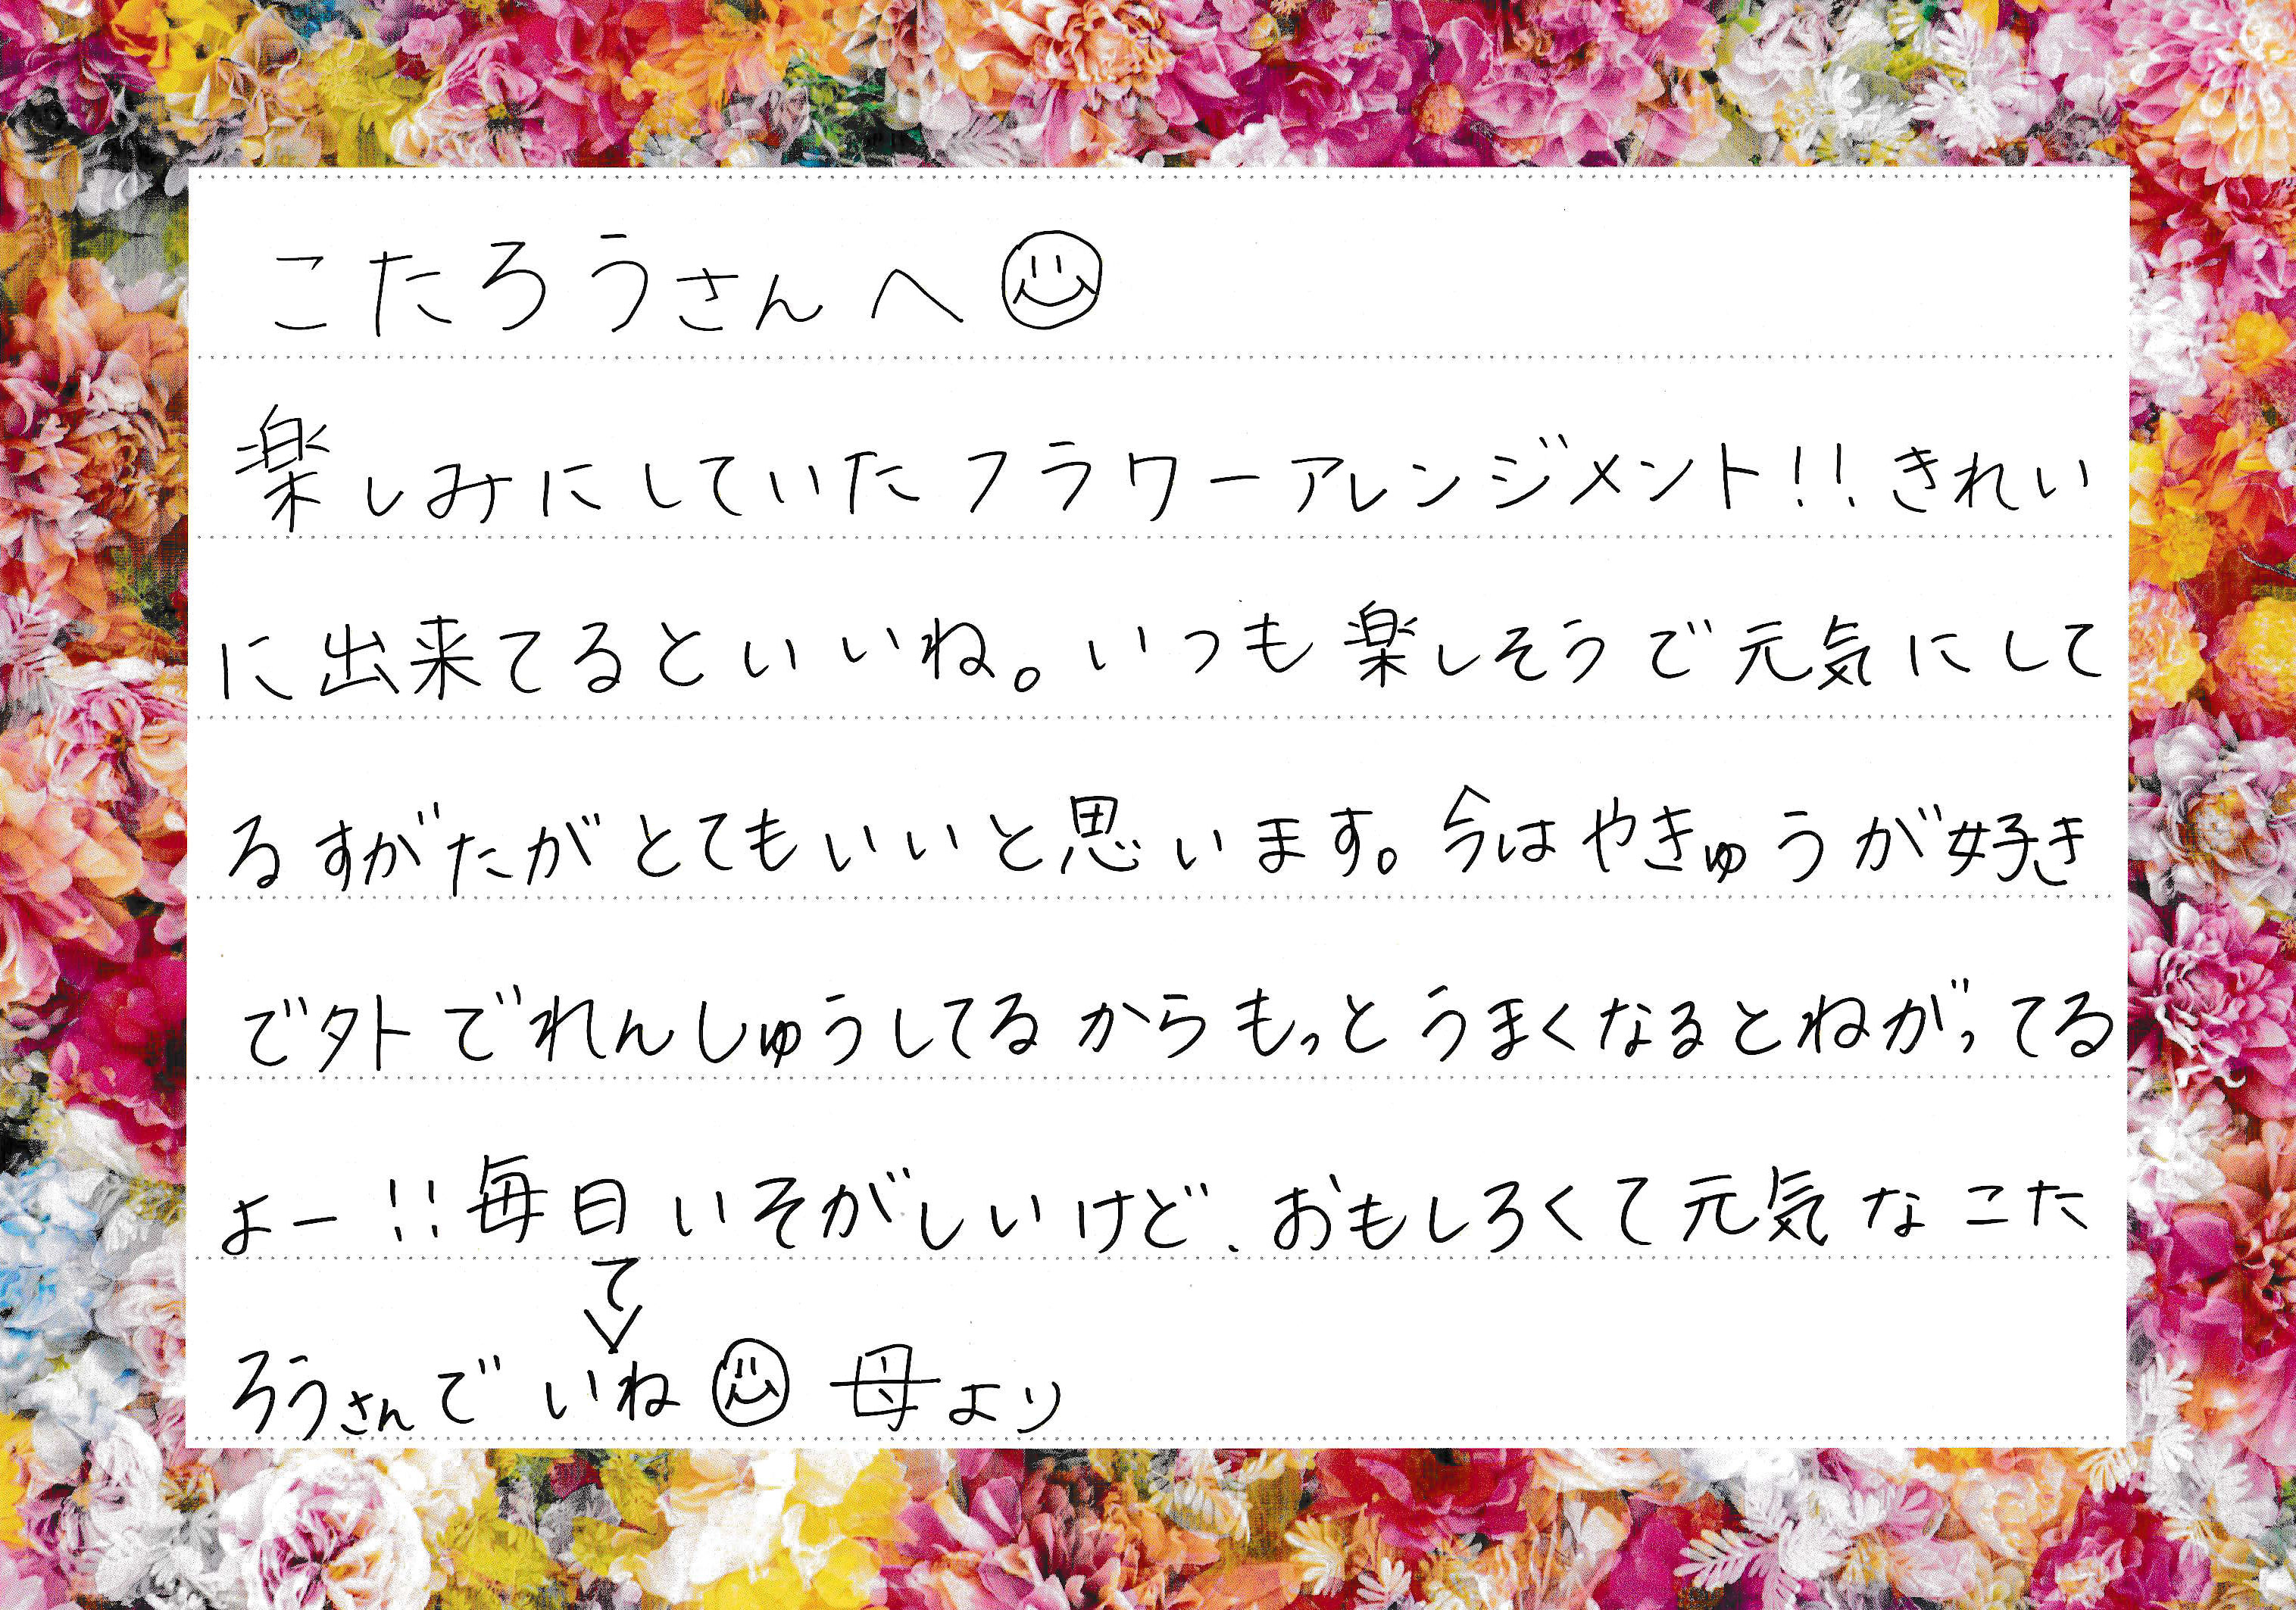 こたろうさんへ
楽しみにしていたフラワーアレンジメント!!きれい
に出来てるといいね。いつも楽しそうで元気にして
るすがたがとてもいいと思います。今はやきゅうが好き
で外でれんしゅうしてるからもっとうまくなるとねがってる
よー!!毎日いそがしいけど、おもしろくて元気なこた
て
ろうさんでいね 母より